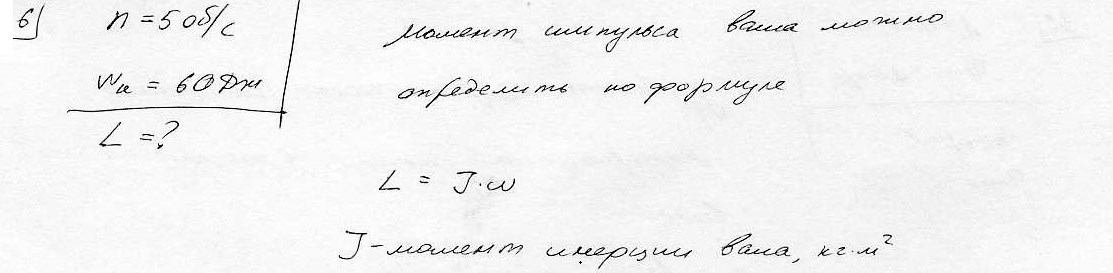 6) n = 5 об/с
Wк = 60 Дж
L = ?
Момент импульса вала можно
определить по формуле
L = J·ω
J - момент инерции вала, кг·м²